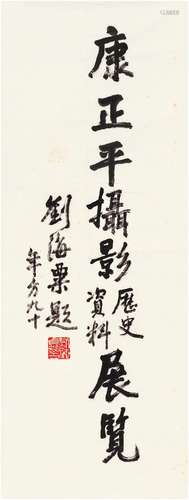 康正平攝影歷史資料展覽
劉海粟題
年方九十